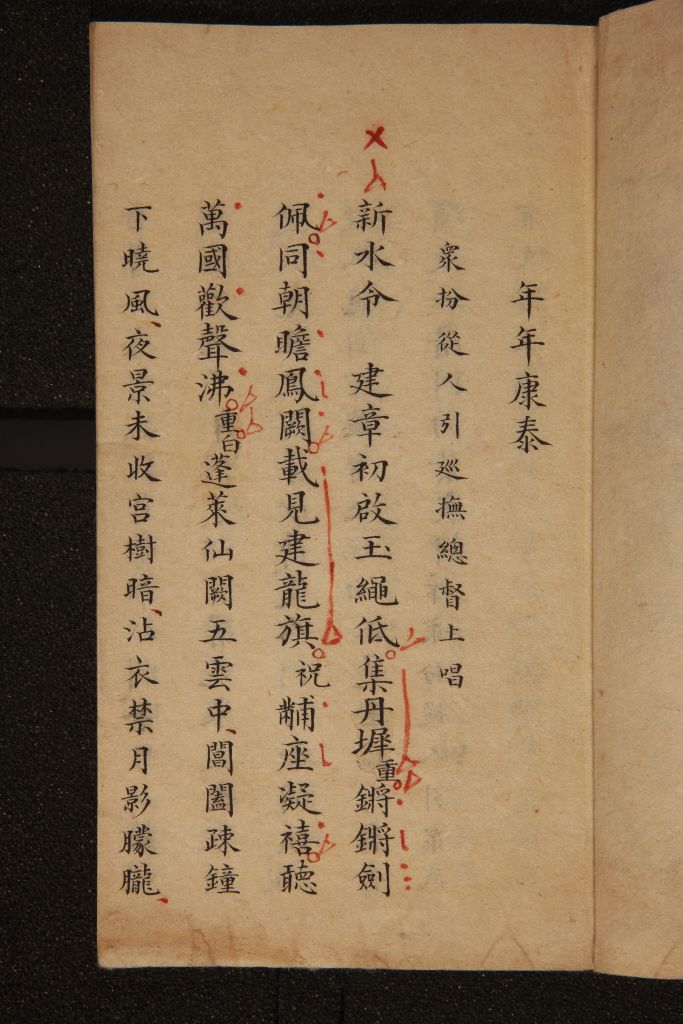 年年康泰
衆扮從人引廵撫總督上唱
新水令 建章初啟玉繩低集丹墀重鏘鏘劍
佩同朝瞻鳳闕載見建龍旗祝黼座凝禧聽
萬國歡聲沸重白蓬萊仙闕五雲中閶闔疎鐘
下曉風夜景未收宫樹暗沾衣禁月影朦朧